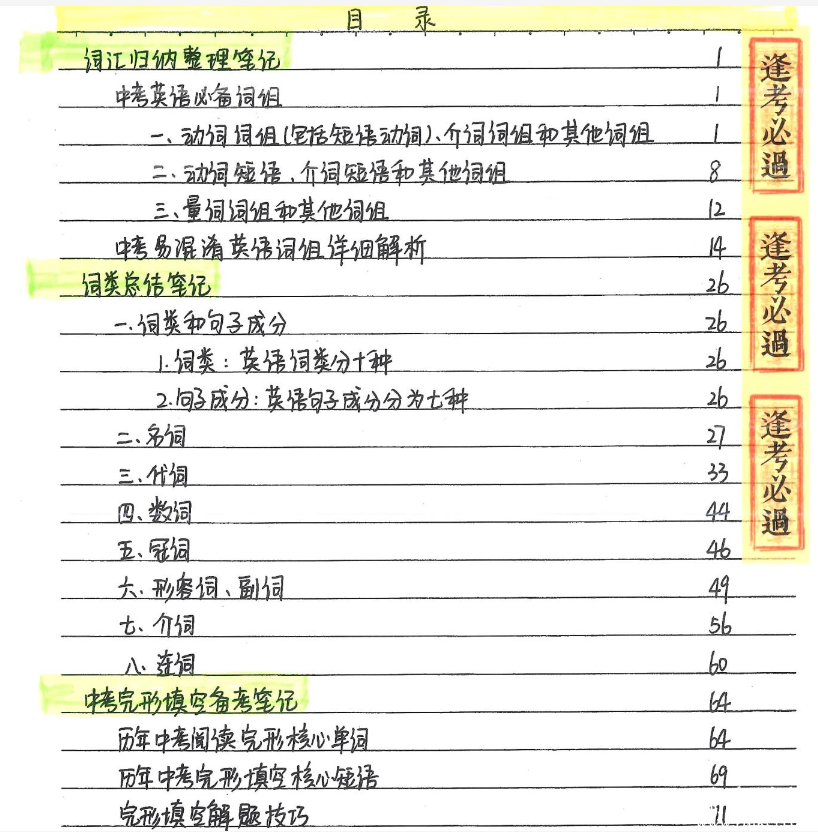 目 录
词汇归纳整理笔记 1
中考英语必备词组 1
一、动词词组(包括短语动词)、介词词组和其他词组 1
二、动词短语、介词短语和其他词组 8
三、量词词组和其他词组 12
中考易混淆英语词组详细解析 14
词类总结笔记 26
一.词类和句子成分 26
1.词类:英语词类分十种 26
2.句子成分:英语句子成分分为七种 26
二、名词 27
三、代词 33
四、数词 44
五、冠词 46
六、形容词、副词 49
七、介词 56
八、连词 60
中考完形填空备考笔记 64
历年中考阅读完形核心单词 64
历年中考完形填空核心短语 69
完形填空解题技巧
逢考必過
逢考必過
逢考必過